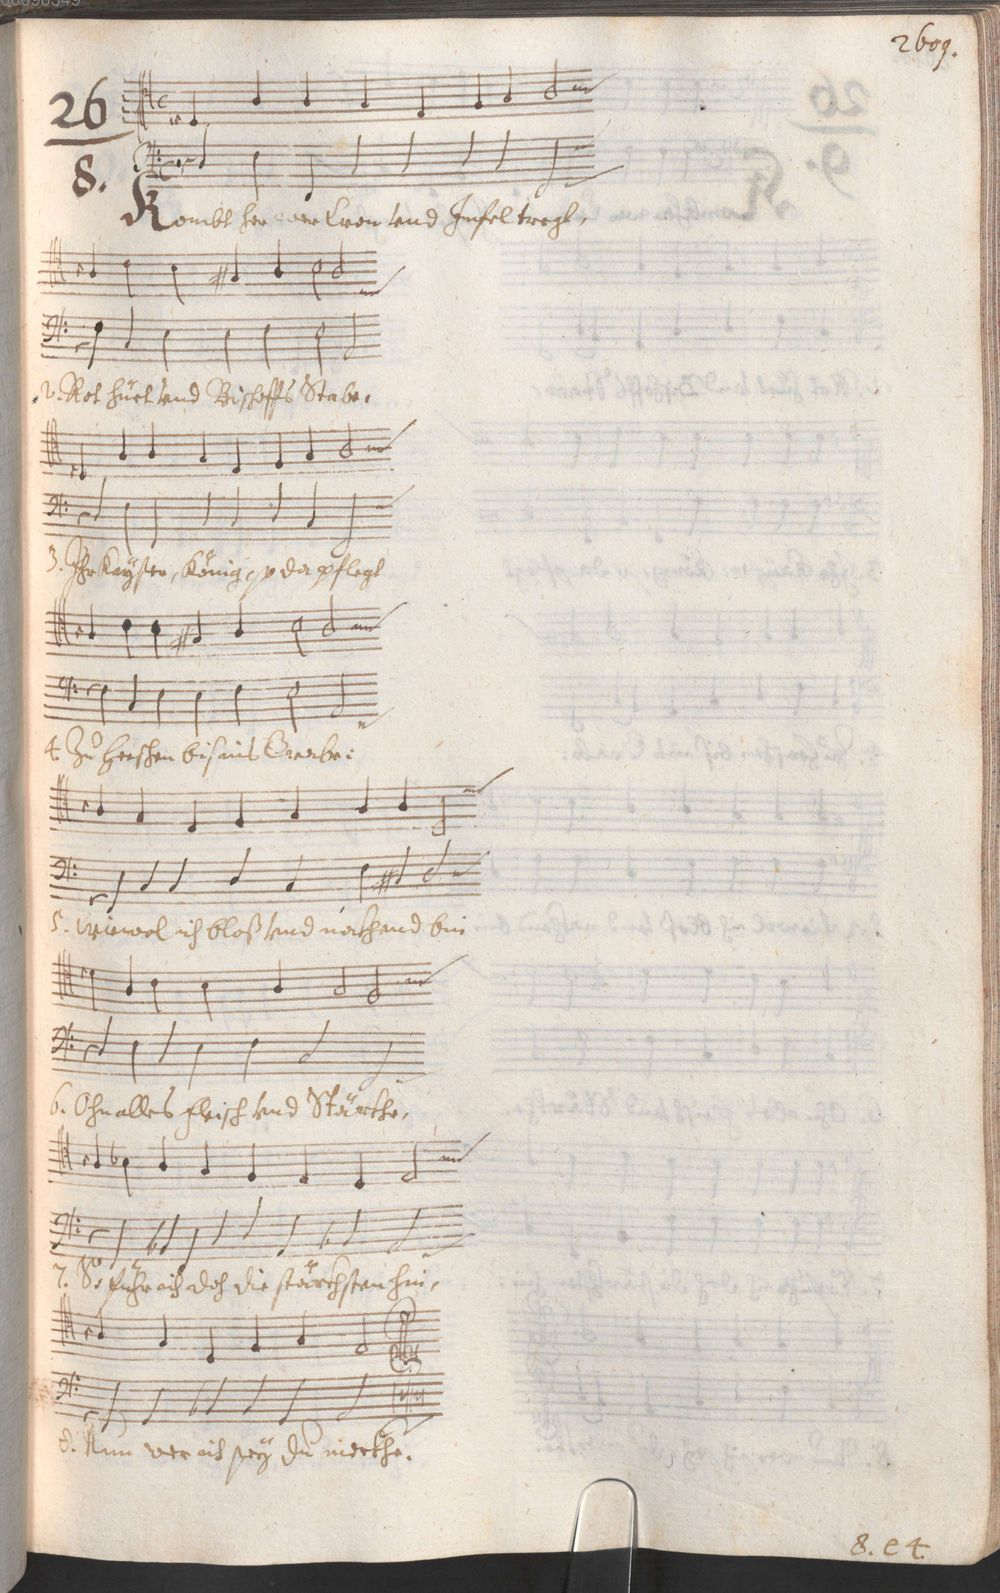 2609.
26
8.
Kombt her wer Cron vnd Infel tregt,
2. Rot hüet vnd Bischoffs Stabe.
3. Ihr Kayser, König, p da pflegt
4. Zů herschen bis ins Grabe:
5. wiewol ich bloß vnd nackhend bin
6. Ohn alles fleisch vnd Stärckhe,
7. So führ ich doch die stärckhsten hin,
8. Nun wer ich sey du merckhe.
8. e 4.